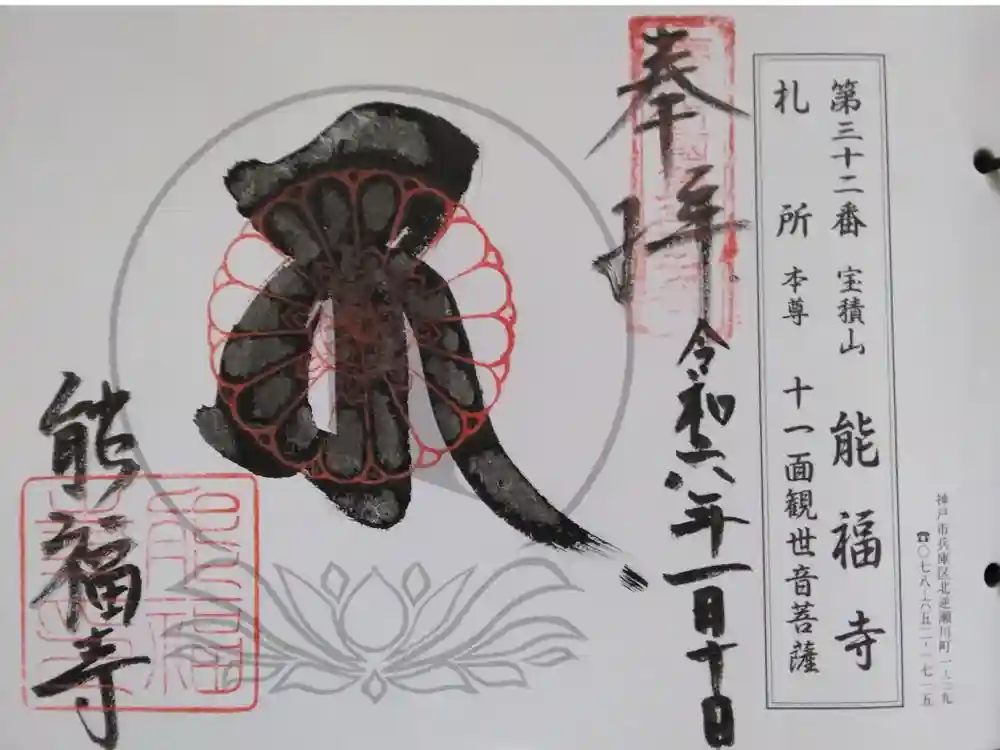 第三十二番 宝積山 能福寺
札所 本尊 十一面観世音菩薩
神戸市兵庫区北逆瀬川町一-三九
☎〇七八-六五二-一七一五
奉拝
令和六年一月十日
能福寺